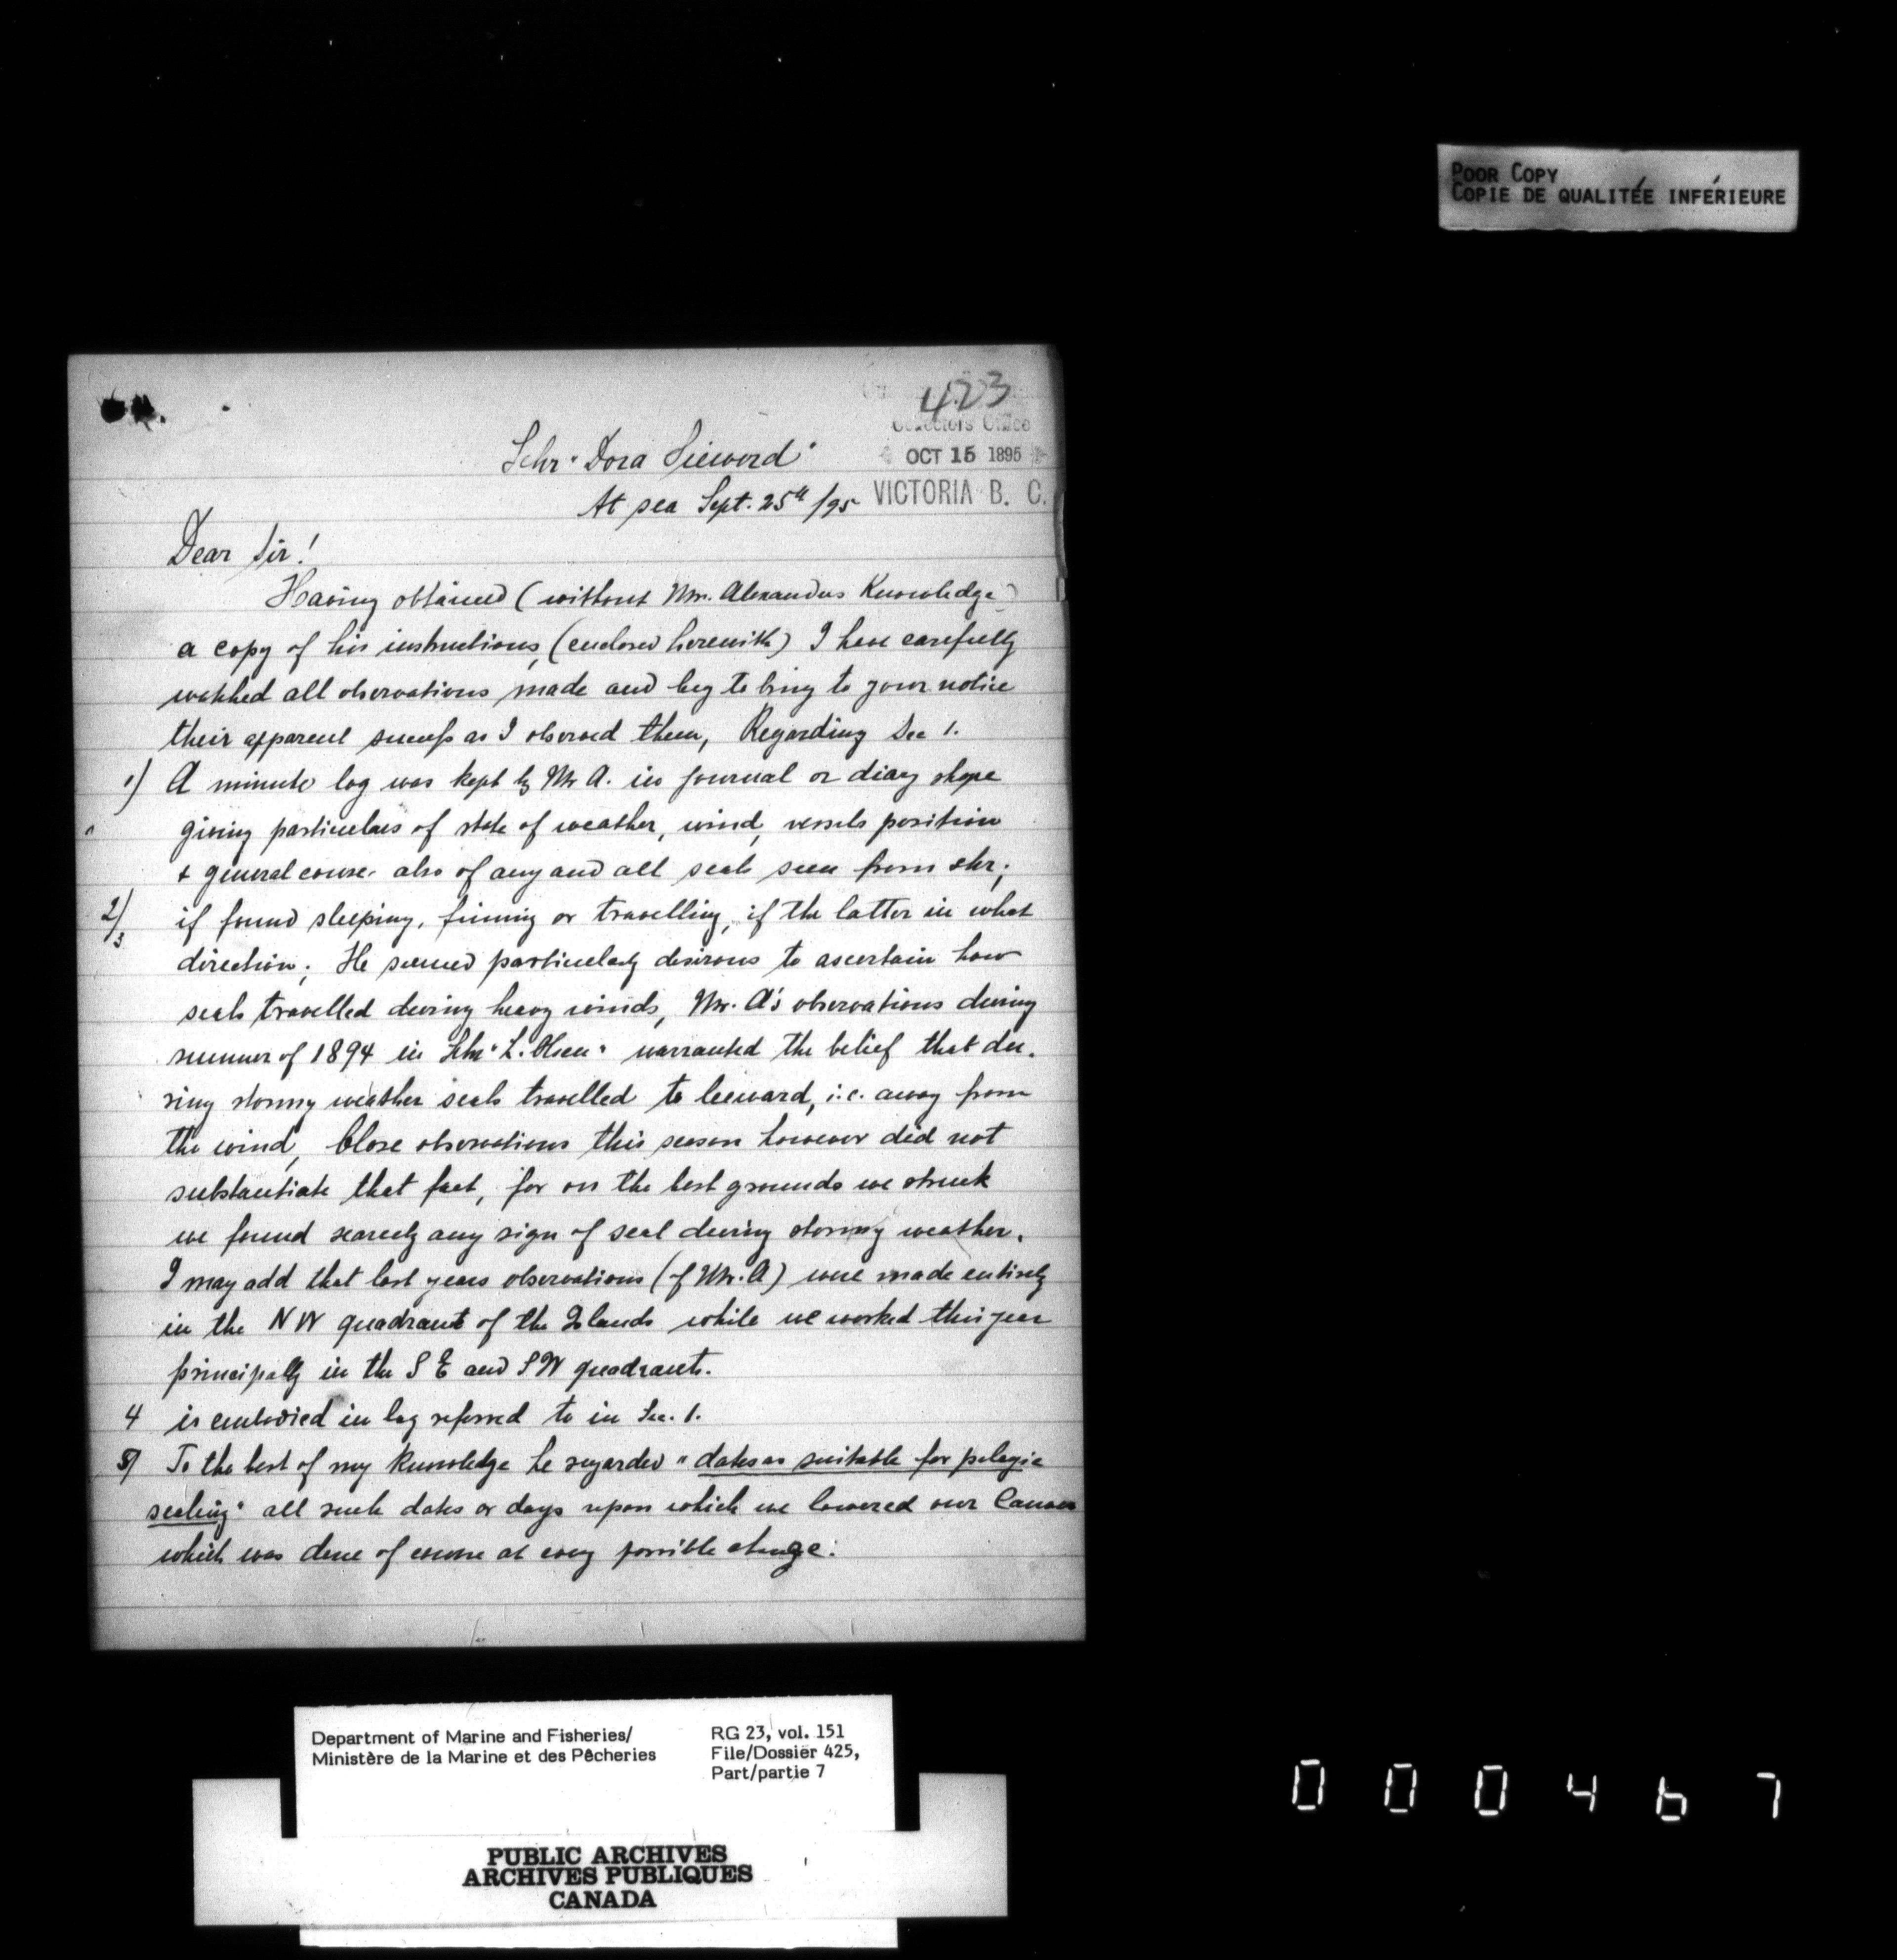 POOR COPY
COPIE DE QUALITÉE INFÉRIEURE
423
Collectors Office
OCT 15 1895
VICTORIA B. C.
Schr "Dora Sieward"
At sea Sept. 25th /95
Dear Sir!
Having obtained (without Mr. Alexanders Knowledge)
a copy of his instructions, (enclosed herewith) I have carefully
watched all observations made and beg to bring to your notice
their apparent success as I observed them, Regarding Sec 1.
1) A minute log was kept by Mr A. in journal or diary shape
giving particulars of state of weather, wind, vessels position
& general course. also of any and all seals seen from schr;
2/3 if found sleeping, finning or travelling, if the latter in what
direction; He seemed particularly desirous to ascertain how
seals travelled during heavy winds, Mr. A's observations during
summer of 1894 in Schr "L. Olsen" warranted the belief that du-
ring stormy weather seals travelled to leeward, i.e. away from
the wind, Close observations this season however did not
substantiate that fact, for on the best grounds we struck
we found scarcely any sign of seal during stormy weather.
I may add that last years observations (of Mr. A) were made entirely
in the NW quadrant of the Islands while we worked this year
principally in the S E and S W quadrants.
4 is embodied in log referred to in Sec. 1.
5) To the best of my Knowledge he regarded "dates as suitable for pelagic
sealing" all such dates or days upon which we lowered our Canoes
which was done of course at every possible
Department of Marine and Fisheries/
Ministère de la Marine et des Pêcheries
RG 23, vol. 151
File/Dossier 425,
Part/partie 7
PUBLIC ARCHIVES
ARCHIVES PUBLIQUES
CANADA
000467